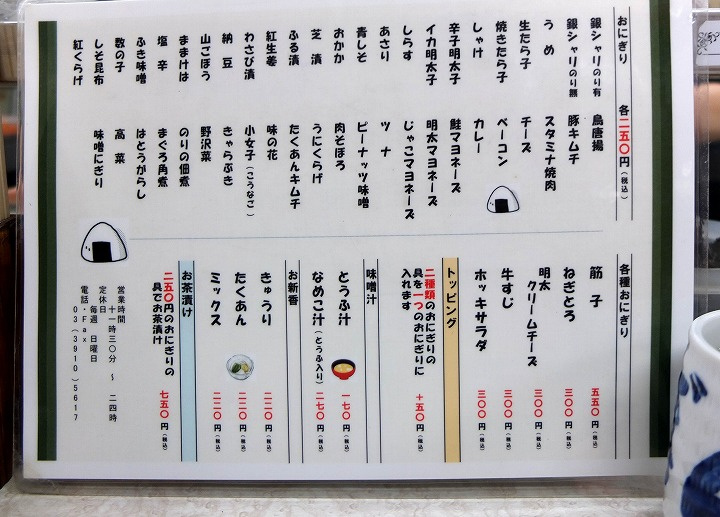 おにぎり 各二五〇円(税込)
銀シャリのり有
銀シャリのり無
うめ
生たら子
焼きたら子
しゃけ
辛子明太子
イカ明太子
しらす
あさり
青しそ
おかか
芝漬
ふる漬
紅生姜
わさび漬
納豆
山ごぼう
ままけは
塩辛
ふき味噌
数の子
しそ昆布
紅くらげ
鳥唐揚
豚キムチ
スタミナ焼肉
チーズ
ベーコン
カレー
鮭マヨネーズ
明太マヨネーズ
じゃこマヨネーズ
ツナ
ピーナッツ味噌
肉そぼろ
うにくらげ
たくあんキムチ
味の花
小女子(こうなご)
きゃらぶき
野沢菜
のりの佃煮
まぐろ角煮
はとうがらし
高菜
味噌にぎり
各種おにぎり
筋子 五五〇円(税込)
ねぎとろ 三〇〇円(税込)
明太クリームチーズ 三〇〇円(税込)
牛すじ 三〇〇円(税込)
ホッキサラダ 三〇〇円(税込)
トッピング
二種類のおにぎりの
具を一つのおにぎりに
入れます +五〇円(税込)
味噌汁
とうふ汁 一七〇円(税込)
なめこ汁(とうふ入り) 二七〇円(税込)
お新香
きゅうり 二二〇円(税込)
たくあん 二二〇円(税込)
ミックス 二二〇円(税込)
お茶漬け
二五〇円のおにぎりの
具でお茶漬け 七五〇円(税込)
営業時間
十一時三〇分 ~ 二四時
定休日
毎週 日曜日
電話・Fax
03(3910)5617